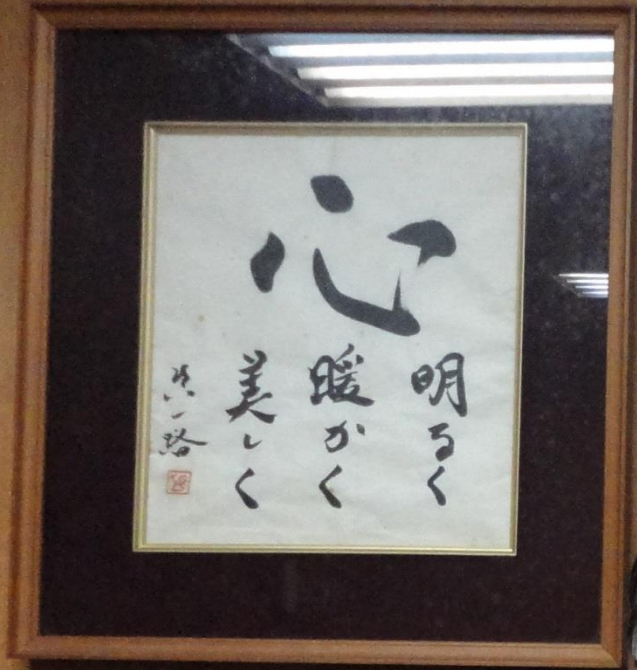 心
明るく
暖かく
美しく